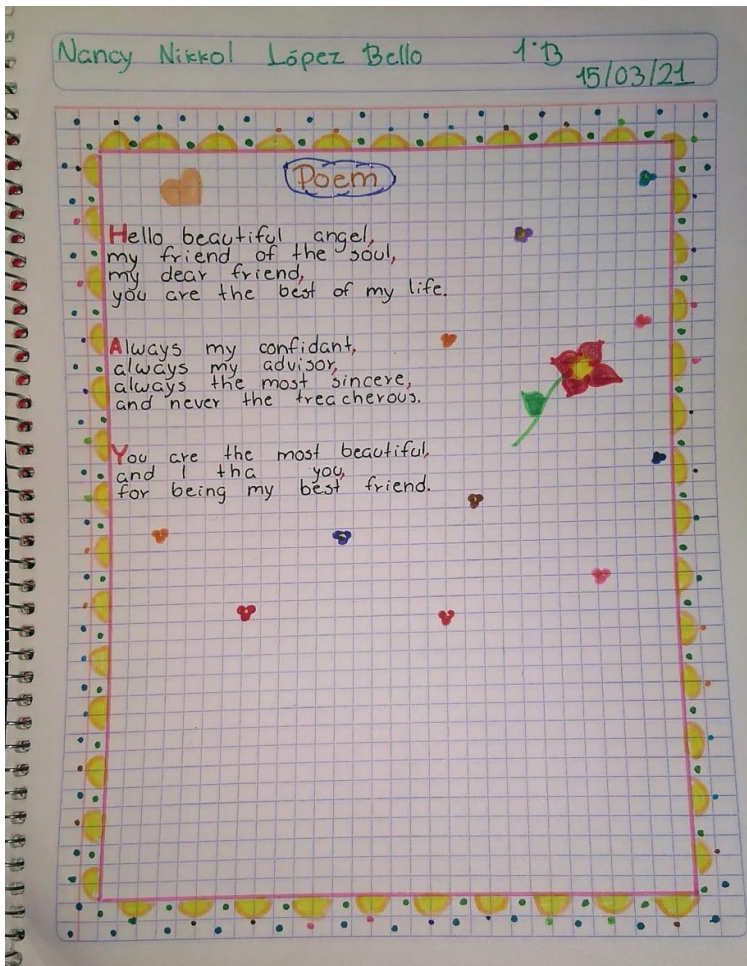 Nancy Nikkol López Bello 1°B
15/03/21
Poem
Hello beautiful angel,
my friend of the soul,
my dear friend,
you are the best of my life.
Always my confidant,
always my advisor,
always the most sincere,
and never the treacherous.
You are the most beautiful,
and I tha you,
for being my best friend.